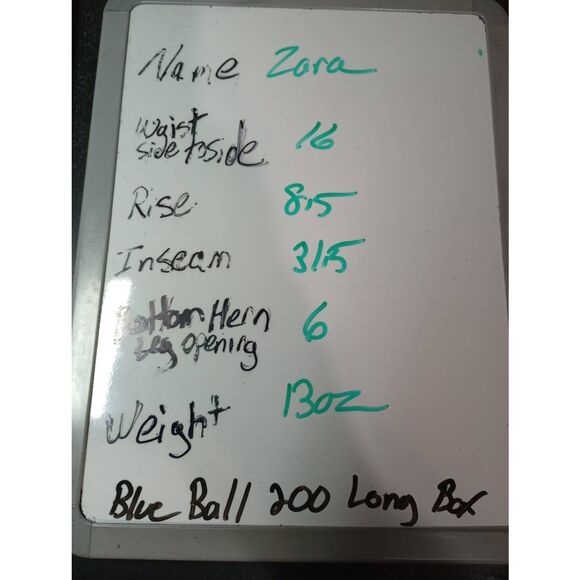 Name Zara
Waist
side to side 16
Rise 8.5
Inseam 31.5
Bottom Hem 6
Leg opening
Weight 13oz
Blue Ball 200 Long Box